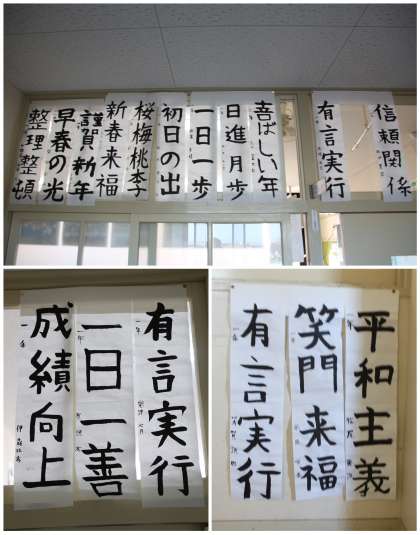 信頼関係
有言実行
喜ばしい年
日進月歩
一日一歩
初日の出
桜梅桃李
新春来福
謹賀新年
早春の光
整理整頓
有言実行
一年
一日一善
一年
成績向上
一年
平和主義
笑門来福
有言実行
一年